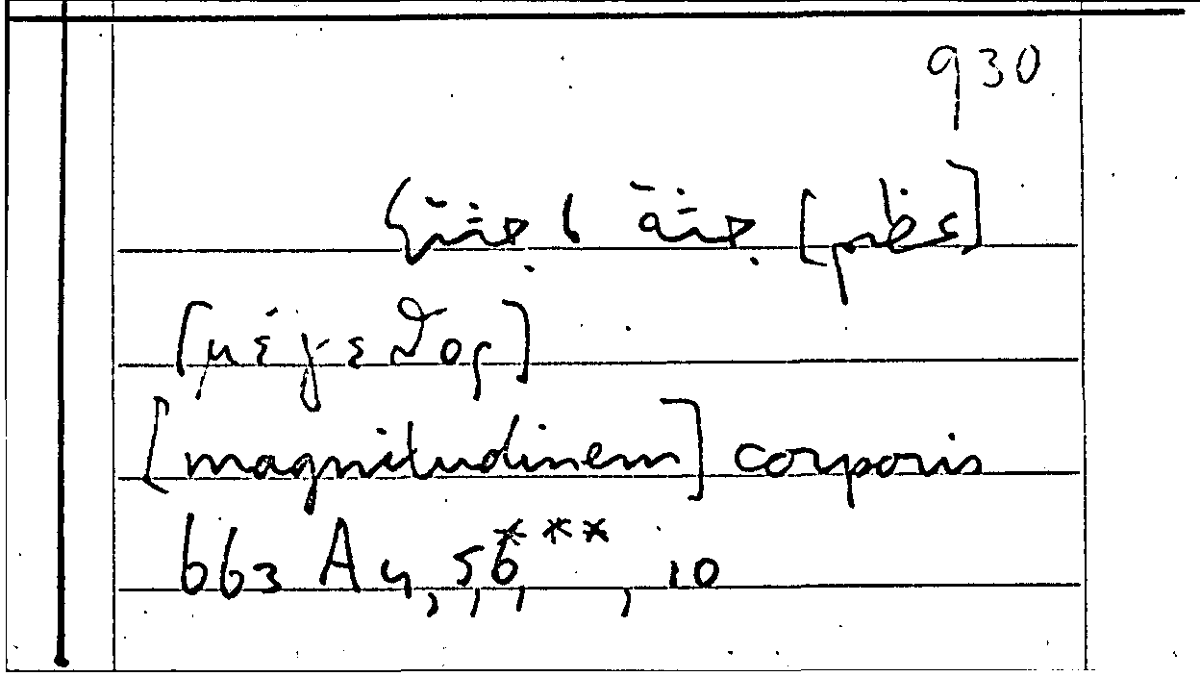 930
[عظم] جثة ا جثتها
[μέγεθος]
[magnitudinem] corporis
663 A 4, 5, 6***, 10